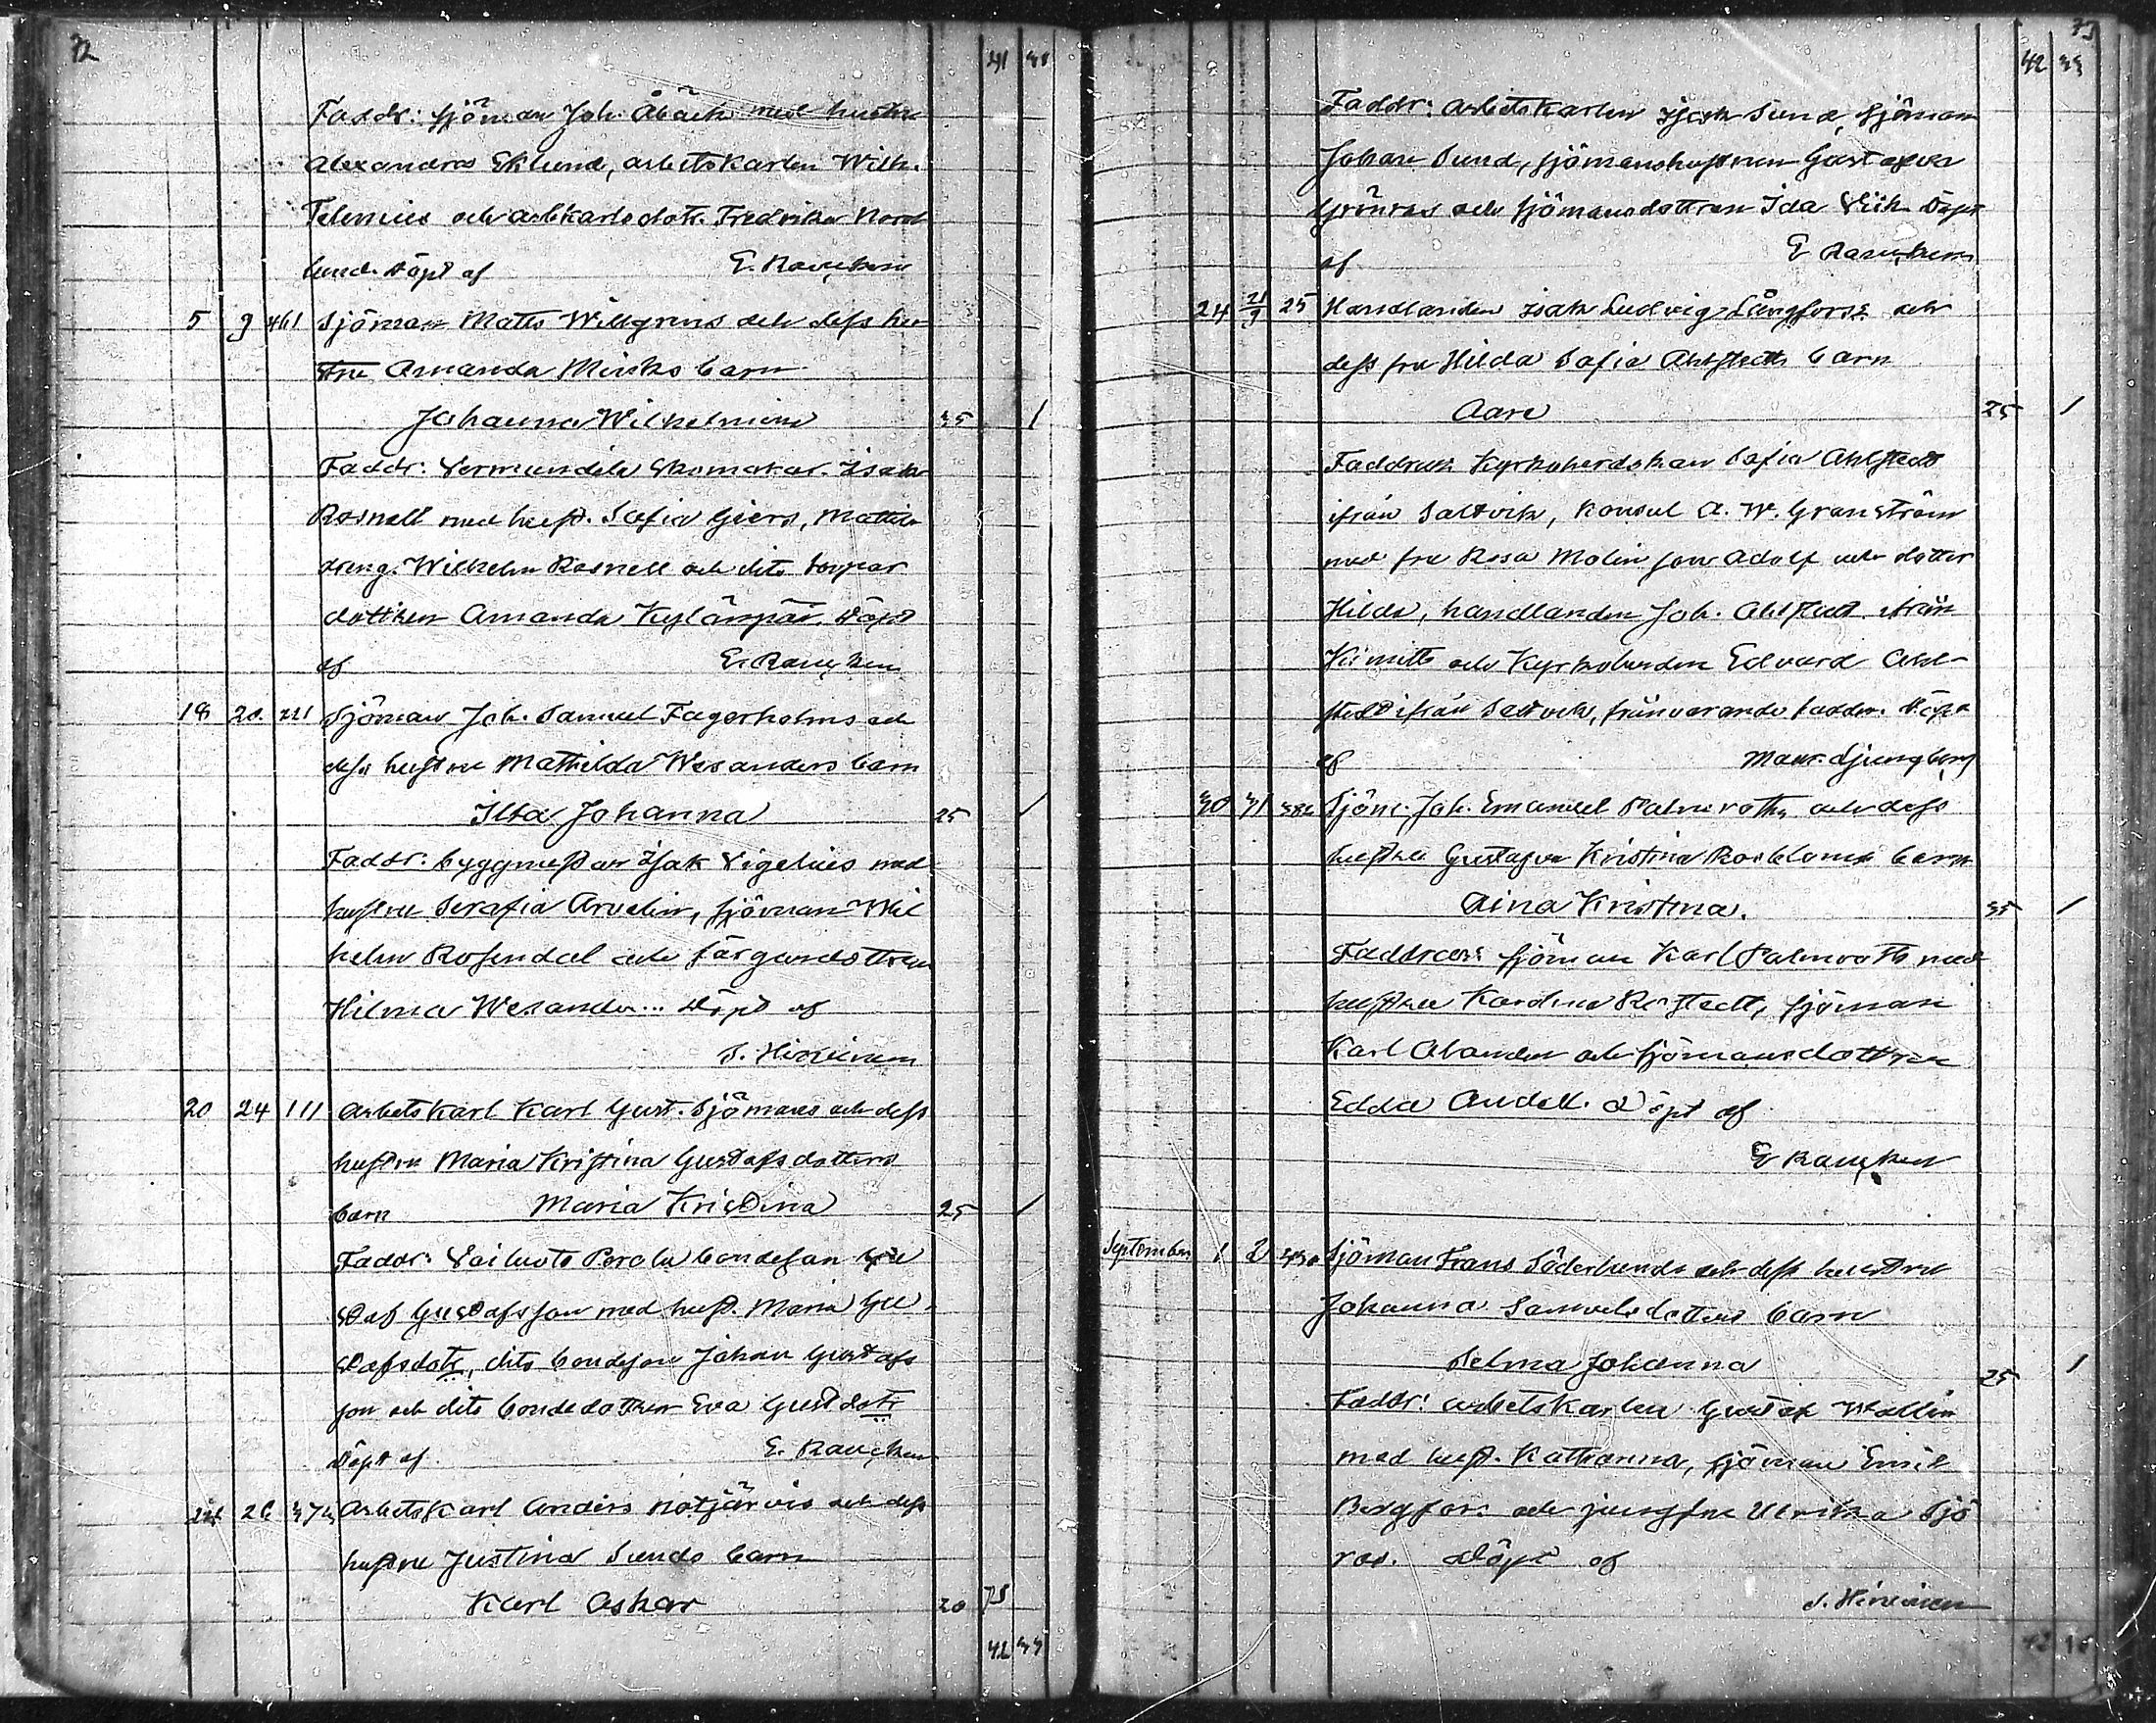 72
41
Faddr: sjöman Joh. Åbäck med hustru
Alexandra Eklund, arbetskarlen Wilh.
Telenius och arbkarlsdott. Fredrika Nord
lund. Döpt af E. Rancken
5 9 461 Sjöman Matts Willgrens och dess hu
stru Amanda Minks barn
Johanna Wilhelmina 35 1
Faddr: Vermundela skomakar. Isak
Rosnell med hust. Safia Giers, Mattila
dreng. Wilhelm Rosnell och dito torpar
dottren Amanda Kylänpää. Döpt
af E. Rancken
18 20. 221 Sjöman Joh. Samuel Fagerholms och
dess hustru Mathilda Wesanders barn
Ilta Johanna 25 1
Faddr: byggmestar Isak Vigelius med
hustru Serafia Arvelin, sjöman Wil
helm Rosendal och färgaredottren
Hilma Wesander... Döpt af
S. Hirvinen
20 24 111 Arbetskarl Karl Gust. Sjömans och dess
hustru Maria Kristina Gustafsdotters
barn Maria Kristina 25 1
Faddr: Vailuoto Perola bondesan Gu
staf Gustafsson med hust. Maria Gu
stafsdotr, dito bondeson Johan Gustafs
son och dito bondedottren Eva Gustdotr
Döpt af E. Rancken
24 26 Arbetskarl Anders Notjärvis och dess
hustru Justina Sunds barn
Karl Oskar 20 75
42 33
73
42 33
Faddr: Arbetskarlen Isak Sund, sjöman
Johan Sund, sjömanshustrun Gustafva
Grönros och sjömansdottren Ida Vik Döpt
af E Rancken
24 21/9 25 Handlanden Isak Ludvig Långfors: och
dess fru Hilda Safia Ahlstedts barn
Aare 25 1
Faddrar: Kyrkoherdskan Safia Ahlstedt
ifrån Saltvik, Konsul A. W. Granström
med fru Rosa Molin son Adolf och dotter
Hilda, handlanden Joh. Ahlstedt ifrån
Kimitto och Kyrkoherden Edvard Ahl-
stedt ifrån Saltvik, frånvarande faddrar. Döpt
af Maur. Ljungberg
30 31 382 Sjöm. Joh. Emanuel Palmroths och dess
hustru Gustafva Kristina Rosbloms barn
Aina Kristina. 35 1
Faddrar: sjöman Karl Palmroth med
hustru Karolina Rostedt, sjöman
Karl Alander och sjömansdottren
Edda Audell. Döpt af
E Rancken
September 1 2 Sjöman Frans Söderlunds och dess hustru
Johanna Samuelsdotters barn
Selma Johanna 25 1
Faddr: arbetskarlen Gustaf Wallin
med hust. Katharina, sjöman Emil
Bergfors och jungfru Ulrika Sjö
ros. Döpt af
S. Hirvinen